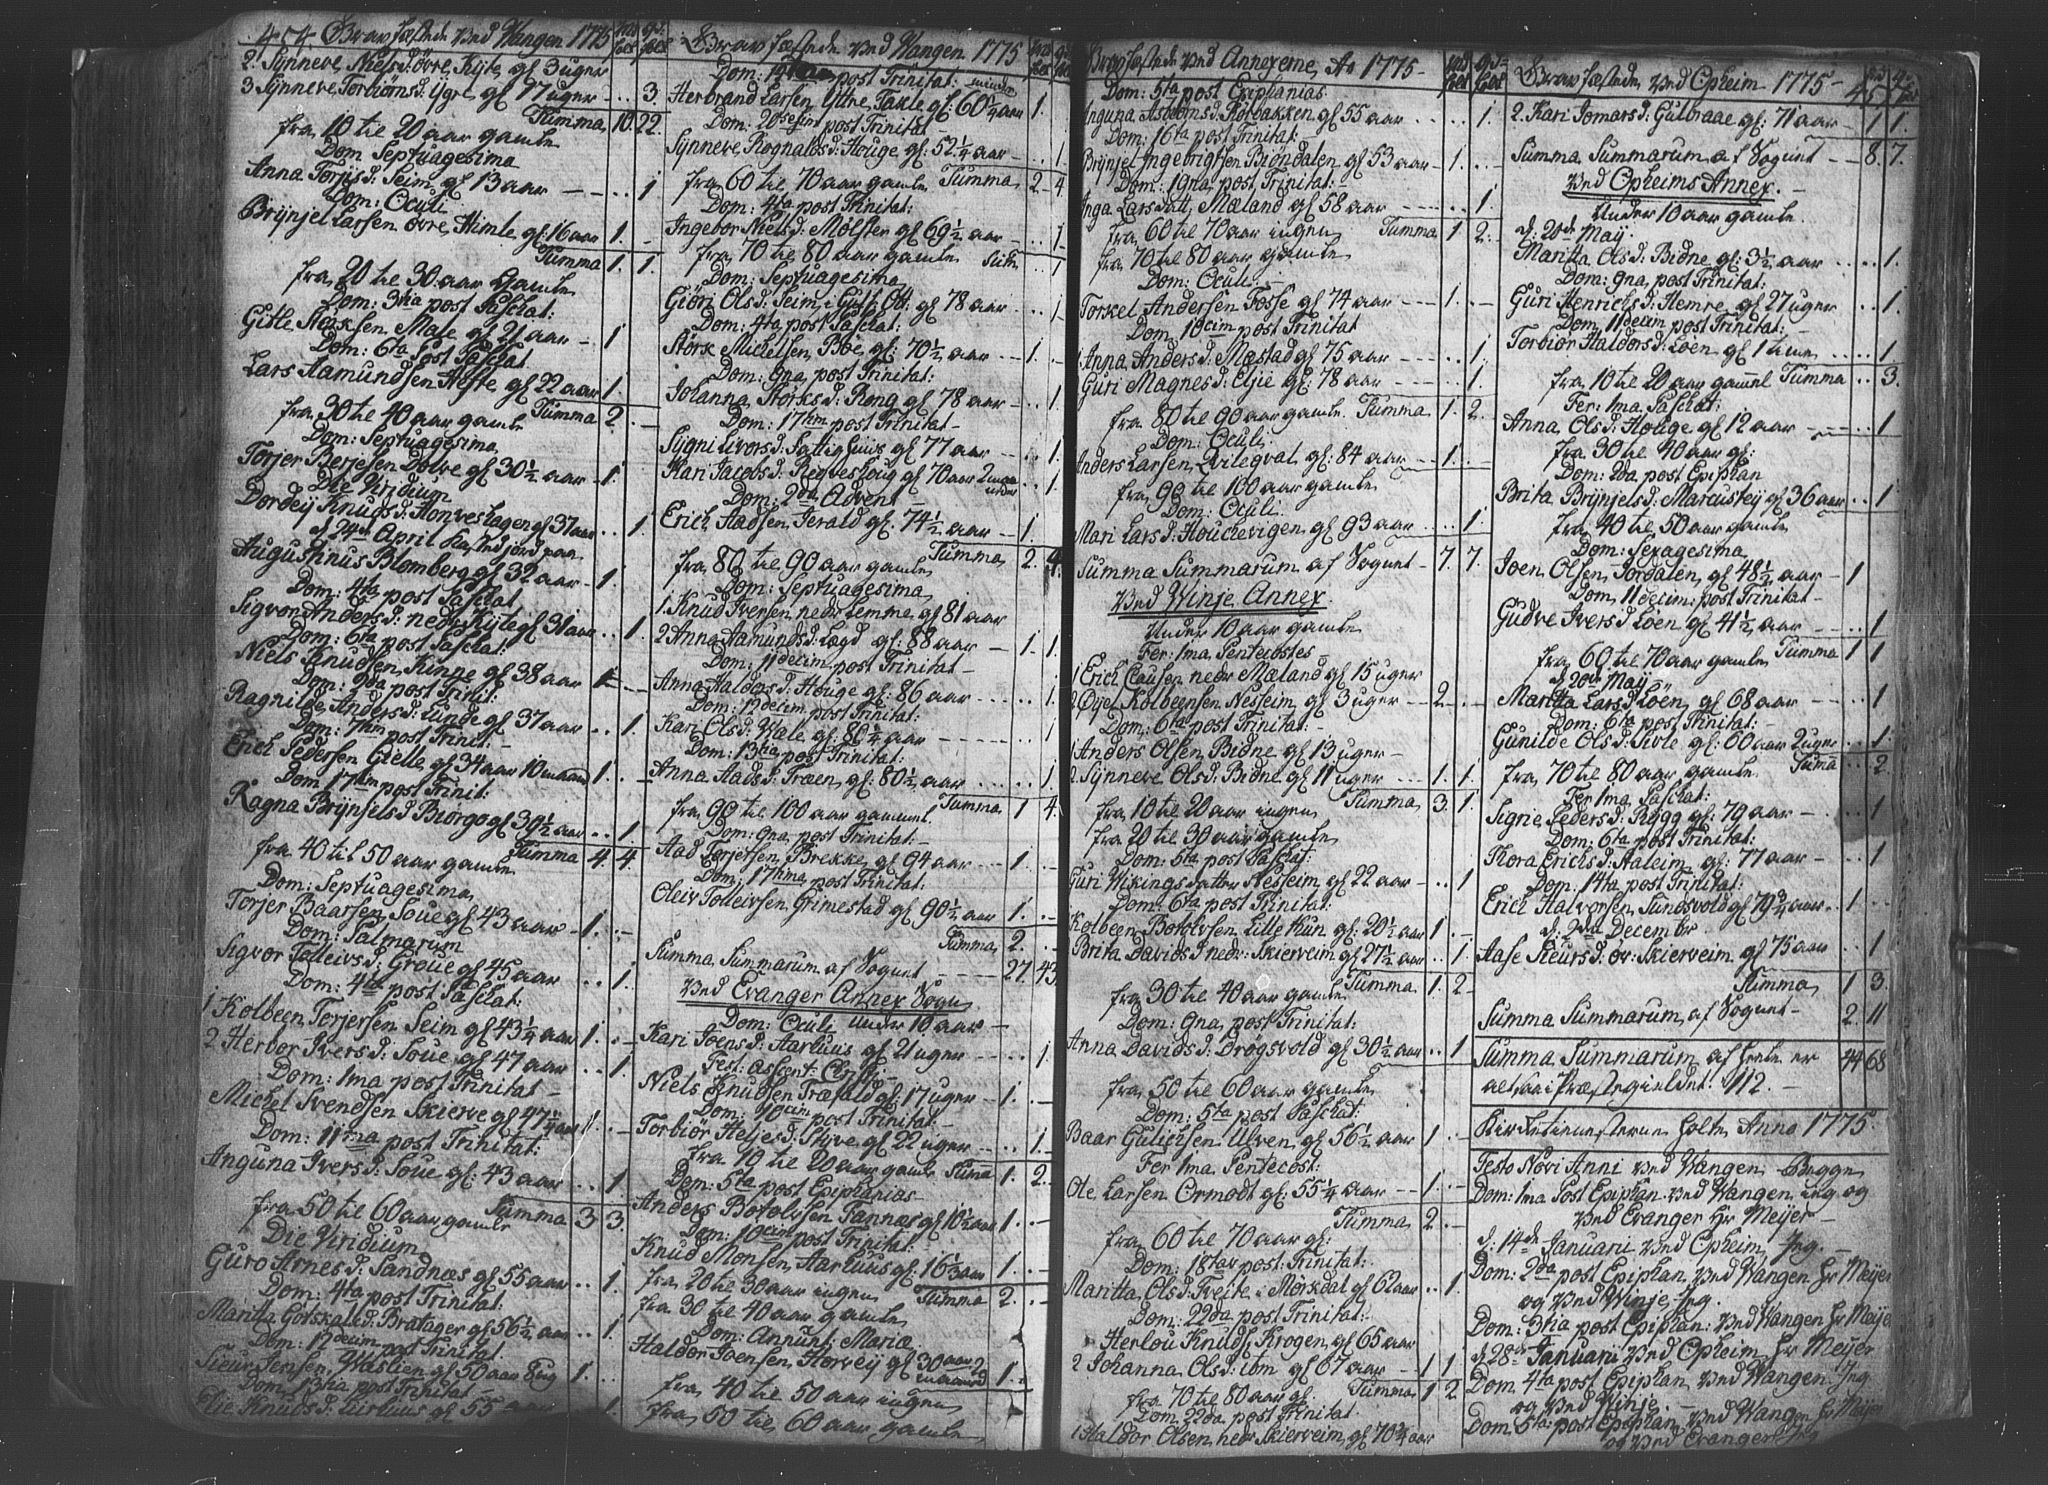 454 Gravfæstede Ved Wangen 1775
2. Synneve Nielsd: Øvre Kyte gl 3 uger
3 Synneve Torbiørnsd: Ygre gl 17 uger - .. 3.
Summa 10. 22.
fra 10 til 20 aar gamle
Dom Septuagesima
Anna Torjisd: Seim gl 13 aar - - - .. 1
Dom: Oculi
Brynjel Larsen øvre Himle gl: 16 aar 1. -
Summa 1. 1.
fra 20 til 30 aar Gamle
Dom: 3tia post Paschat:
Gitle Størksen Male gl 21 aar - 1
Dom: 6ta Post Paschat
Lars Aamundsen Hefte gl 22 aar 1.
fra 30 til 40 aar gamle Summa 2. -
Dom: Septuagesima
Torjer Berjesen Dolve gl 30½ aar - 1.
Die Viridium
Dordey Knudsd: Honveshagen gl 37 aar .. 1.
d 24de April Kasted jord paa
Augustinus Blomberg gl 32 aar - 1.
Dom: 4ta post Paschat
Sigvor Andersd: nedr Kyte gl 31 aar .. 1.
Dom: 6ta post Paschat:
Niels Knudsen Kinne gl 38 aar 1 -
Dom: 2da post Trinit:
Ragnilde Andersd: Lunde gl 37 aar .. 1.
Dom: 7tim post Trinit: -
Erich Pedersen Gielle gl 34 aar 10 maaned 1. -
Dom 17tim post Trinit:
Ragna Brynjelsd Biørgo gl 39½ aar .. 1.
fra 40 til 50 aar gamle Summa 4. 4.
Dom: Septuagesima
Torjer Baarsen Soue gl 43 aar - 1. -
Dom: Palmarum
Sigvor Tolleivsd: Groue gl 45 aar .. 1.
Dom: 4ta post Paschat:
1 Kolbeen Torjersen Seim gl 43¼ aar 1. -
2 Herbor Iversd: Soue gl 47 aar .. 1.
Dom: 1ma post Trinitat -
Michel Svendsen Skierve gl 47¼ aar 1. -
Dom: 11ma post Trinitat:
Anguna Iversd: Soue gl: 43 aar .. 1
fra 50 til 60 aar gamle Summa 3. 3.
Die Viridium
Guro Arnesd: Sandnæs gl 55 aar .. 1.
Dom: 4ta post Trinitat:
Maritta Gotskalcsd: Bratager gl 56½ aar .. 1.
Dom: 12decim post Trinitat.
Sieur Jensen Waslien gl 50 aar 8 ug 1. -
Dom: 13tia post Trinitat
Elie Knudsd: gl 55 aar 1.
Gravfæstede Ved Wangen 1775
Dom: 19 post Trinitat:
Herbrand Larsen Yttre Takle gl: 60¼ aar minder 1.
Dom: 20sesim post Trinitat -
Synneve Rognaldsd: Houge gl: 52¼ aar - .. 1.
fra 60 til 70 aar gamle Summa 2 - 4
Dom: 4ta post Trinitat:
Ingebor Nielsd: Mølster gl 69½ aar - .. 1
fra 70 til 80 aar gamle - 1
Dom: Septuagesima
Giøri Olsd: Seim gl 78 aar .. 1
Dom: 4ta post Paschat:
Størk Michelsen Bøe gl: 70½ aar - - 1. -
Dom: 9na post Trinitat:
Johanna Størksd: Rong gl 78 aar - .. 1.
Dom: 17tim post Trinitat -
Sygni Livorsd: Fattighuus gl 77 aar .. 1.
Kari Jacobsd: Reqveshoug gl 70 aar 2 uger .. 1
Dom: 2da Advent
Erich Aadsen Jerald gl: 74½ aar - 1.
fra 80 til 90 aar gamle Summa 2. 4.
Dom: Septuagesima
1. Knud Iversen nedr Lemme gl 81 aar
2 Anna Aamundsd: Lægd gl: 88 aar - 1. 1.
Dom: 11decim post Trinitat -
Anna Haldorsd: Houge gl: 86 aar ... 1.
Dom: 12decim post Trinitat:
Kari Olsd: Wale gl: 80¼ aar - - - 1
Dom: 13tia post Trinitat:
Anna Aadsd: Træen gl: 80½ aar .... 1
fra 90 til 100 aar gammel Summa 1 4.
Dom: 9na post Trinitat:
Aad Torjersen Brekke gl 94 aar - - 1.
Dom: 17tima post Trinitat:
Oleiv Tolleivsen Grimestad gl 90½ aar 1. -
Summa 2. -
Summa Summarum af Sognet - - - 27. 43.
Ved Evanger Annex Sogn
Dom: Oculi under 10 aar -
Kari Joensd: Aarhuus gl 21 uger - - .. 1.
Fest: ascent: Chrsti -
Niels Knudsen Træfald gl 17 uger - 1. -
Dom: 10cim post Trinitat -
Torbiør Heljesd: Styve gl 22 uger - - - 1.
fra 10 til 20 aar gamle Suma 1. 2.
Dom: 5ta post Epiphanias -
Anders Botolvsen Fannæs gl 10½ aar 1. -
Dom: 10cim post Trinitat:
Knud Monsen Aarhuus gl 16½ aar 1 -
fra 20 til 30 aar ingen Summa 2. -
fra 30 til 40 aar gamle
Dom: Annunt: Mariæ
Haldor Joensen Horvey gl 30 aar 2 maaned 1. -
fra 40 til 50 aar ingen
fra 50 til 60 aar gamle
Gravfæstede Ved Annexerne Ao 1775
Dom: 5ta post Epiphanias
Inguna Asbiømsd: Rørbakken gl 55 aar - - .. 1.
Dom: 16ta post Trinitat: -
Brynjel Ingebrigtsen Biøndalen gl 53 aar - 1. -
Dom: 19na post Trinitat: -
Inga Larsdatt Mæland gl 58 aar - .... 1
fra 60 til 70 aar ingen Summa 1 2.
fra 70 til 80 aar gamle
Dom: Oculi
Torkel Andersen Fosse gl 74 aar - - - 1. -
Dom 10cim post Trinitat
1 Anna Andersd: Mæstad gl 75 aar - - - .. 1.
Guri Magnesd: Eljie gl: 78 aar - - - .. 1.
fra 80 til 90 aar gamle Summa 1. 2.
Dom: Oculi
Anders Larsen Qvilegval gl: 84 aar - - 1. -
fra 90 til 100 aar gamle
Dom: Oculi
Mari Larsd: Houchevigen gl 93 aar .... 1.
Summa Summarum af Sognet - 7. 7.
Ved Winje Annex
Under 10 aar gamle
Fer: 1ma Pentecostes -
1 Erich Clausen nedr Mæland gl 15 uger
2 Odjel Kolbeensen Nesheim gl 3 uger - 2 -
Dom: 6ta post Trinitat: -
1 Anders Olsen Bidne gl 13 uger -
2 Synneve Olsd: Bidne gl 11 uger - - 1. 1.
fra 10 til 20 aar ingen Summa 3. 1.
fra 20 til 30 aar gamle
Dom: 5ta post Paschat:
Guri Wikingsdatter Nesheim gl 22 aar - .. 1
Dom: 6ta post Trinitat:
Kolbeen Botolvsen Lille Kun gl: 20½ aar 1. -
Brita Davidsd: nedr: Skierveim gl 27½ aar .. 1.
fra 30 til 40 aar gamle Summa 1. 2 -
Dom: 9na post Trinitat:
Anna Davidsd: Drøgsvold gl: 30½ aar .. 1
fra 50 til 60 aar gamle
Dom: 5ta post Paschat:
Baar Gulichsen Ulven gl 56½ aar 1. -
Fer 1ma Pentecost:
Ole Larsen Ormodt gl: 55¼ aar - - 1. -
Summa 2. -
fra 60 til 70 aar gl:
Dom: 18tav post Trinitat:
Maritta Olsd: Tveite i Morskdal gl 62 aar .. 1.
Dom: 22da post Trinitat:
Herlou Knudsd: Krogen gl 65 aar
2 Johanna Olsd: ibm gl 67 aar - - 1 1
fra 70 til 80 aar gl: Summa 1 2.
Dom: 22da post Trinitat:
1 Haldor Olsen nedr Skierveim gl 70¾ aar
Gravfæstede Ved Opheim 1775 - 455
2. Kari Jomarsd: Gulbraae gl: 71 aar - 1 1.
Summa Summarum af Sognet - - 8. 7.
Ved Opheims Annex. -
Under 10 aar gamle
d: 20de Maij.
Maritta Olsd: Bidne gl: 3½ aar - - .. 1.
Dom: 9na post Trinitat:
Guri Henrichsd: Hemre gl 27 uger - .. 1.
Dom 11decim post Trinitat: -
Torbiør Haldorsd: Løen gl 1 time - ..... 1
fra 10 til 20 aar gammel Summa .. 3.
Fer: 1ma Paschat:
Anna Olsd: Houge gl 12 aar - - - - 1
fra 30 til 40 aar gl:
Dom: 2da post Epiphan
Brita Brynjelsd: Marcustey gl 36 aar .. 1
fra 40 til 50 aar gamle
Dom: Sexagesima
Joen Olsen Jordalen gl 48½ aar - 1
Dom 11decim: post Trinitat -
Gudve Iversd Løen gl 41½ aar - .... 1
fra 60 til 70 aar gamle Summa 1 1
d 20de Maij -
Maritta Larsd Løen gl 68 aar - - - .. 1
Dom: 6ta post Trinitat: -
Gunilde Olsd: Sivle gl: 60 aar 2 uger .. 1.
fra 70 til 80 aar gamle Suma .. 2
Fer 1ma Paschat:
Sigrie Pedersd: Rygg gl: 79 aar - . .. 1
Dom: 6ta post Trinitat:
Thora Erichsd: Haleim gl: 77 aar - .. 1
Dom: 14ta post Trinitat:
Erich Halvorsen Sundsvold gl 79¾ aar .. 1 -
d: 2da December
Aase Sieursd: øv: Skierveim gl 75 aar .. 1
Summa 1 3.
Summa Summarum af Sognet - 2. 11
Summa Summarum af hele er 44 68
altsaa i Præstegieldet! 112. -
Kirketienesterne holte Anno 1775.
Festo Novi Anni Ved Wangen Begge
Dom: 1ma Post Epiphan Ved Wangen ing og
Ved Evanger Hr Meijer -
d: 14de Januarii Ved Opheim Jng. -
Dom: 2da post Epiphan Ved Wangen Hr Meijer
og Ved Winje Jng.
Dom: 3tia post Epiphan: Ved Wangen Hr Meijer
d 28de Januarii Ved Opheim Hr Meijer
Dom 4ta post Epiphan Ved Wangen Jng
og Ved Winje. -
Dom 5ta: post Epiphan Ved Wangen Hr Meijer
og Ved Evanger Jng